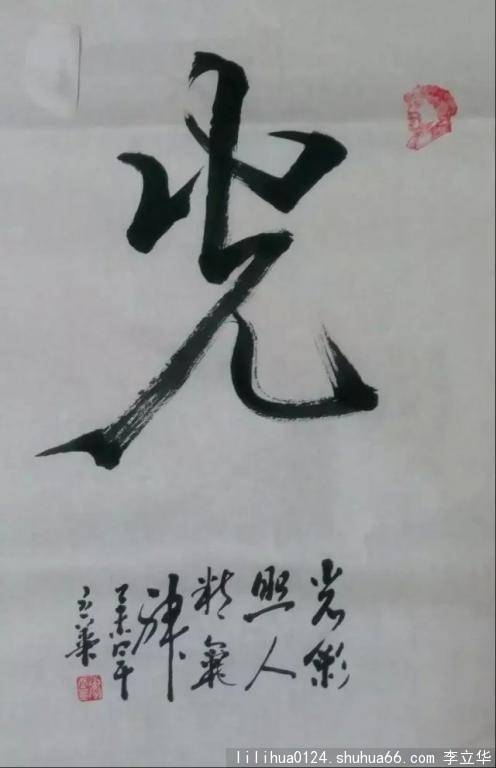 光
光彩
照人
精气
神
乙未同平
立华
lilihua0124.shuhua66.com 李立华